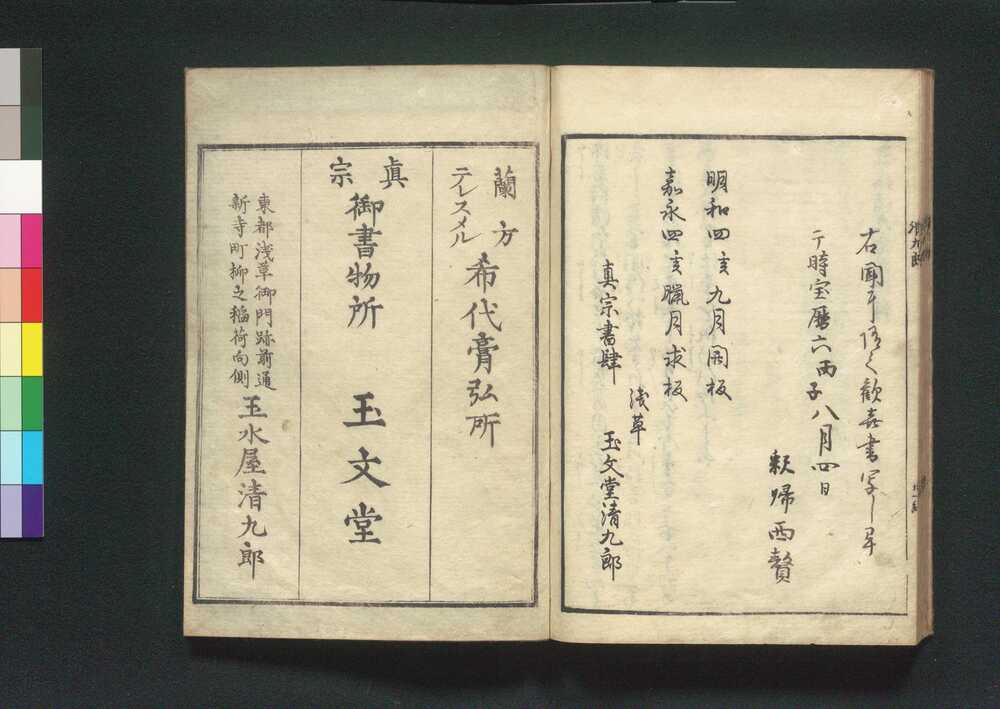 右聞テ随々歓喜書写し早
于時宝暦六丙子八月四日
釈帰西賛
明和四亥九月開板
嘉永四亥臘月求板
浅草
真宗書肆 玉文堂清九郎
清九郎
蘭方
テレスメル
希代膏弘所
真宗
御書物所 玉文堂
東都浅草御門跡前通
新寺町柳之稲荷向側
玉水屋清九郎